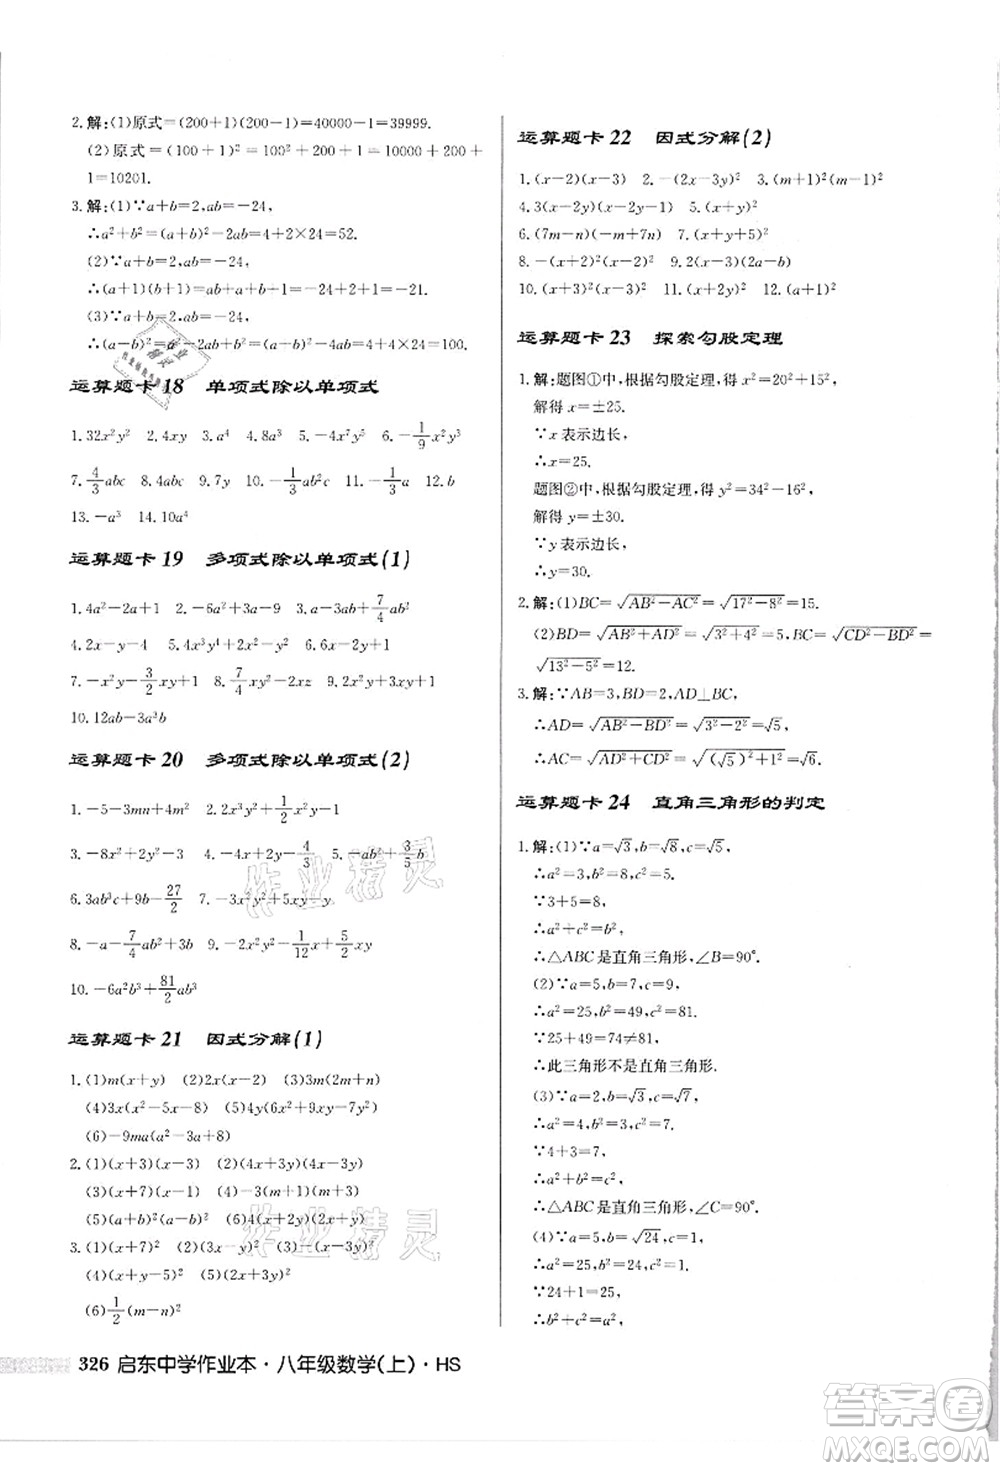 2.解:(1)原式=(200+1)(200-1)=40000-1=39999.
(2)原式=(100+1)²=100²+200+1=10000+200+
1=10201.
3.解:(1)∵a+b=2,ab=-24,
∴a²+b²=(a+b)²-2ab=4+2×24=52.
(2)∵a+b=2,ab=-24,
∴(a+1)(b+1)=ab+a+b+1=-24+2+1=-21.
(3)∵a+b=2,ab=-24,
∴(a-b)²=(a+b)²-4ab=4+4×24=100.
运算题卡 18 单项式除以单项式
1.32x²y² 2.4xy 3.a⁴ 4.8a³ 5.-4x⁷y⁵ 6.-1/9x²y³
7.4/3abc 8.4abc 9.6y 10.-1/3ab²c 11.-4y 12.-6b
13.-a³ 14.10a⁴
运算题卡 19 多项式除以单项式(1)
1.4a²-2a+1 2.-6a²+2a-1 3.1/3a+7/4ab²
4.2x-y-4 5.2x-4 6.4x³-2x
7.-x²-3/2x-y 8.7/4xy²-2xz 9.-2x+y
10.12ab-3a³b
运算题卡 20 多项式除以单项式(2)
1.-5-3mn+4m² 2.2x³y+1/2y²+1
3.-8x²-2x+3 4.6x-4/3 5.-ab²+3/5b
6.3ab³c+9b-27/2 7.-3x²y²+5xy-y
8.-a-7/4ab²+b³ 9.-2x²-1/12x+5/2
10.-6a²b²+81/2ab³
运算题卡 21 因式分解(1)
1.(1)m(x+y) (2)2x(x-2) (3)5x(x+2y)
(4)3x(x²-5x-8) (5)4y(6x²+3x-7)
(6)-9ma(a²-3a+8)
2.(1)(x+3)(x-3) (2)(4x+3y)(4x-3y)
(3)(x+7)(x-1) (4)(3+x²)(3-x²)
(5)(a+2x)(a-2x) (6)4(2x+3y)(2x-3y)
3.(1)(x+2)² (2)(3x-y)² (3)(a-1)²
(4)(x-5)² (5)-(x-y)²
(6)1/2(m-n)²
326 启东中学作业本·八年级数学(上)·HS
运算题卡 22 因式分解(2)
1.(x-2)(x-3) 2.-(2x-3y)² 3.(m+1)²(m-1)²
4.3(x-2y)(x-2y-1) 5.(x+y)²
6.(7m-n)(-m+7n) 7.(x-y)(x+y)²
8.-(x+2)²(x-2)² 9.2(x-3)(2a-b)
10.(x+3)²(x-3)² 11.(x+y-4)² 12.(a²+1)²
运算题卡 23 探索勾股定理
1.解:题图①中,根据勾股定理,得 x²=20²+15²,
解得 x=±25.
∵x 表示边长,
∴x=25.
题图②中,根据勾股定理,得 y²=34²-16²,
解得 y=±30.
∵y 表示边长,
∴y=30.
2.解:(1)BC=√(AB²-AC²)=√(17²-8²)=15.
(2)BD=√(AB²+AD²)=√(3²+4²)=5,BC=√(CD²-BD²)=
√(13²-5²)=12.
3.解:∵AB=3,BD=2,AD⊥BC,
∴AD=√(AB²-BD²)=√(3²-2²)=√5,
∴AC=√(AD²+CD²)=√((√5)²+1²)=√6.
运算题卡 24 直角三角形的判定
1.解:(1)∵a=√3,b=√8,c=√5,
∴a²=3,b²=8,c²=5.
∵3+5=8,
∴a²+c²=b²,
∴△ABC是直角三角形,∠B=90°.
(2)∵a=5,b=7,c=9,
∴a²=25,b²=49,c²=81.
∵25+49=74≠81,
∴此三角形不是直角三角形.
(3)∵a=2,b=√3,c=√7,
∴a²=4,b²=3,c²=7.
∵4+3=7,
∴a²+b²=c²,
∴△ABC是直角三角形,∠C=90°.
(4)∵a=5,b=√24,c=1,
∴a²=25,b²=24,c²=1.
∵24+1=25,
∴b²+c²=a²,
作业精灵
作业精灵
答案圈
MXQE.COM